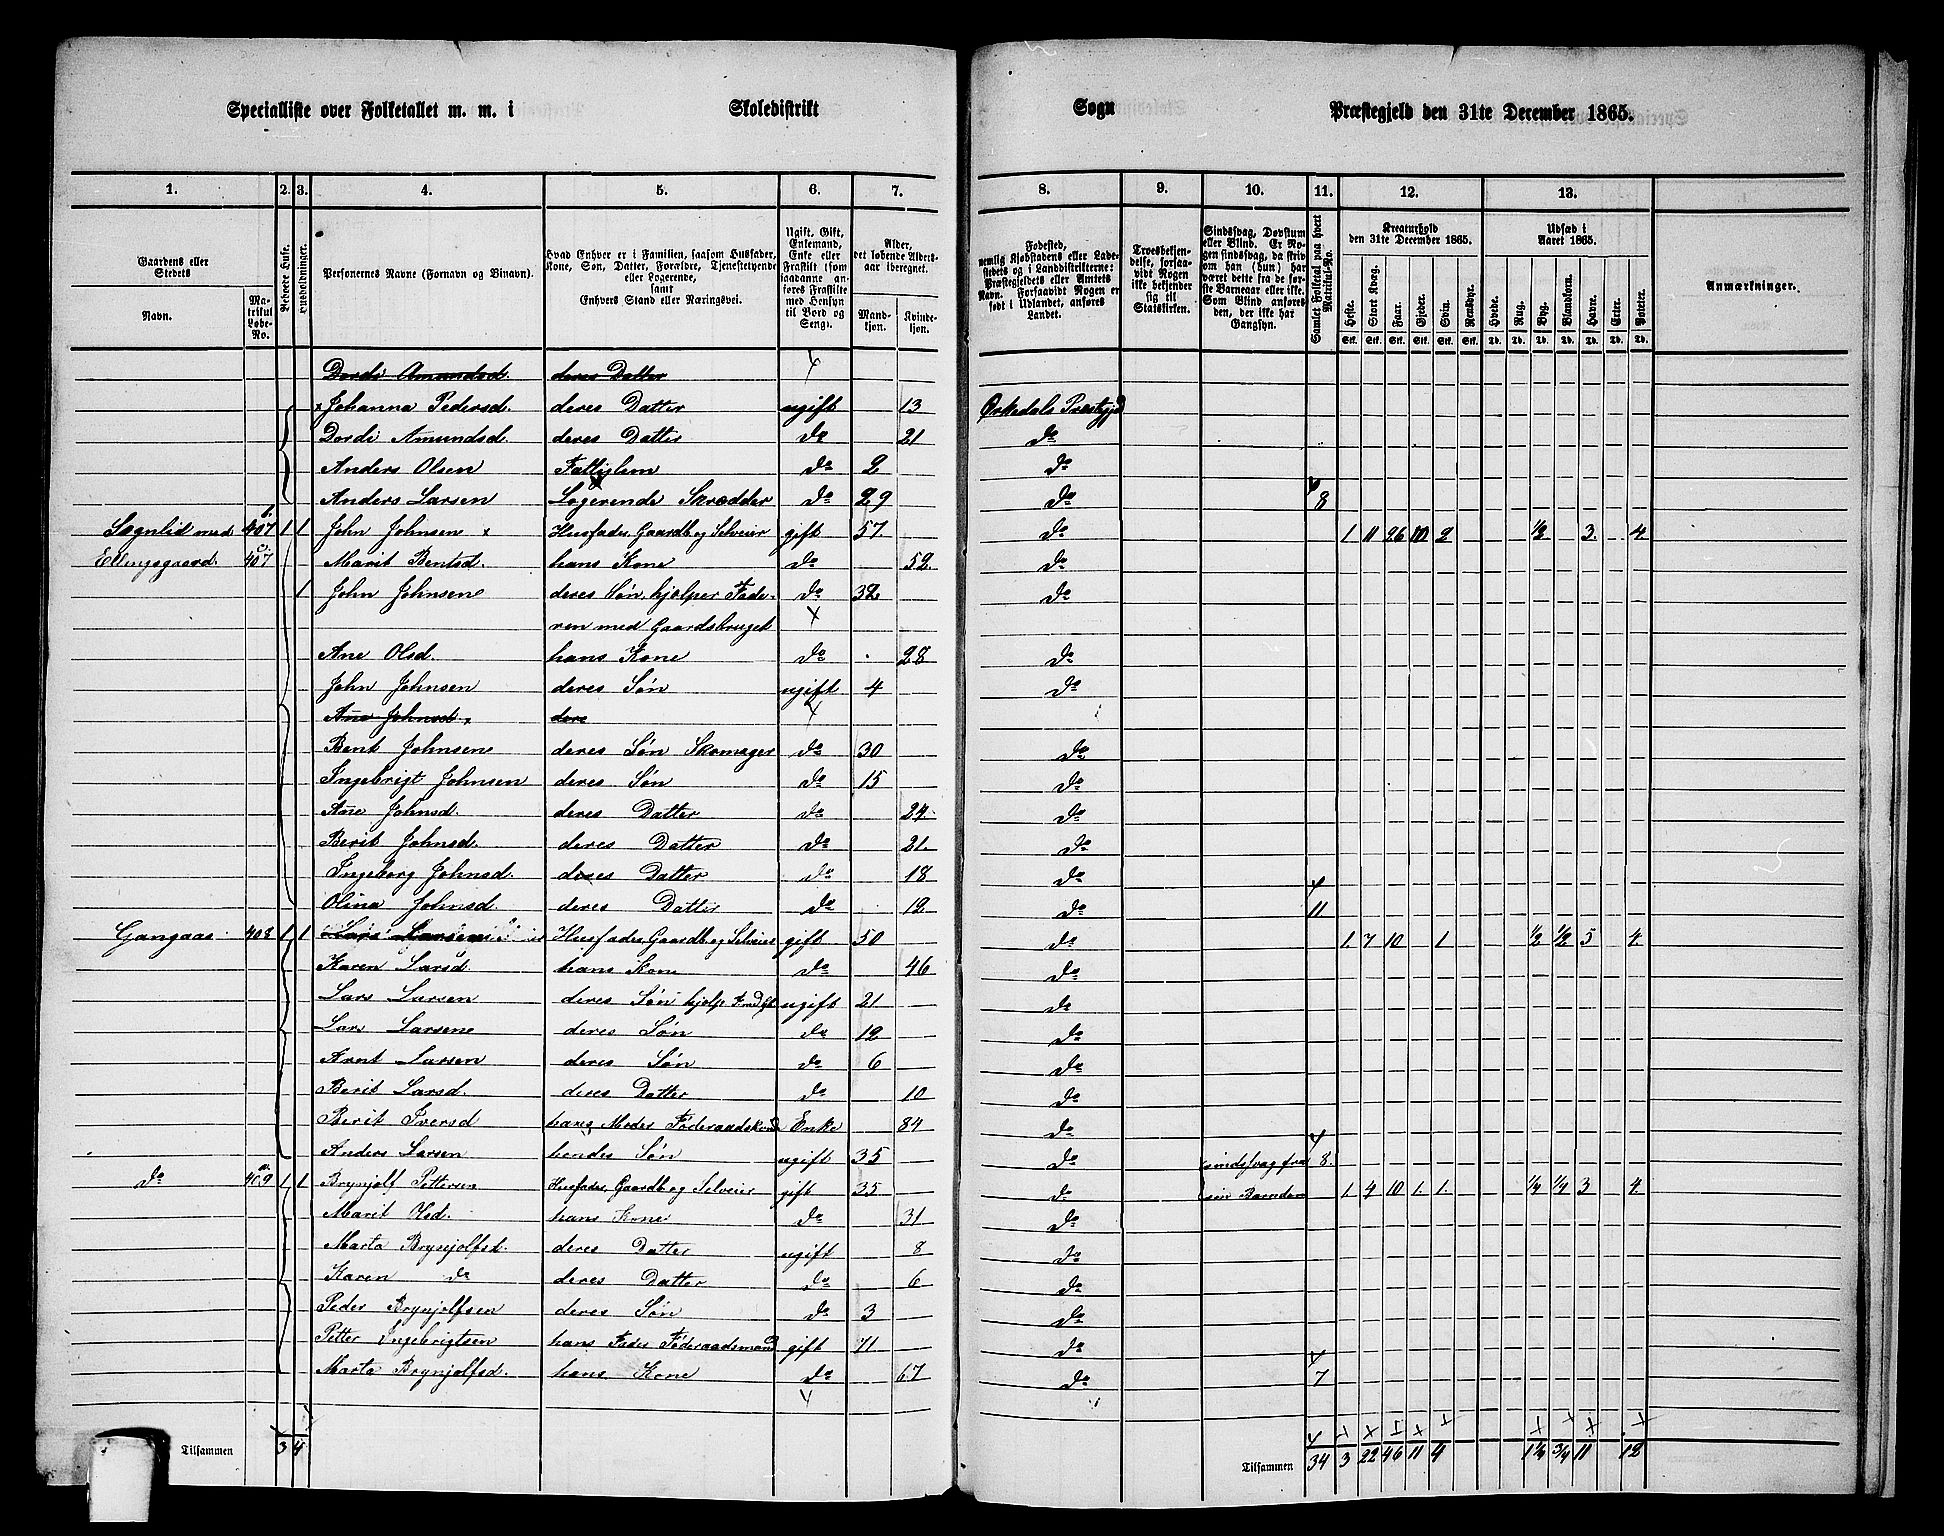 Specialliste over Folketallet m. m. i Skoledistrikt Sogn Præstegjeld den 31te December 1865.
1. 2. 3. 4. 5. 6. 7. 8. 9. 10. 11. 12. 13.
Gaardens eller Stedets
Navn.
Matrikul Løbe-No.
Beboede Huse.
Husholdninger.
Personernes Navne (Fornavn og Binavn).
Hvad Enhver er i Familien, saasom Husfader, Kone, Søn, Datter, Forældre, Tjenestetyende eller Logerende, samt Enhvers Stand eller Næringsvei.
Ugift, Gift, Enkemand, Enke eller Fraskilt (som saadanne anføres Fraskilte med Hensyn til Bord og Seng).
Alder, det løbende Aldersaar iberegnet.
Mandkjøn. Kvindekjøn.
Fødested, nemlig Kjøbstadens eller Ladestedets og i Landdistrikterne: Præstegjeldets eller Amtets Navn. Forsaavidt Nogen er født i Udlandet, anføres Landet.
Troesbekjendelse, forsaavidt Nogen ikke bekjender sig til Statskirken.
Sindssvag, Døvstum eller Blind. Er Nogen sindssvag, da skrives om han (hun) har været dette fra de første Barneaar eller ikke. Som Blind anføres den, der ikke har Gangsyn.
Samlet Folketal paa hvert Matrikul-No.
Kreaturhold den 31te December 1865.
Heste. Stort Kvæg. Faar. Gjeder. Svin. Rensdyr.
Udsæd i Aaret 1865.
Hvede. Rug. Byg. Blandkorn. Havre. Erter. Poteter.
Anmærkninger.
Dordi Amundsd. deres Datter
Johanna Pedersd. deres Datter ugift 13 Ørkedals Prestgjd
Dordi Amundsd. deres Datter do 21 do
Anders Olsen Fattiglem do 2 do
Anders Larsen Logerende Skrædder do 29 do 8
Sognlid med 407 b. 1 1 John Johnsen Husfader, Gaardb og Selveier gift 57 do 1 11 26 10 2 1/2 3 4
Ellingsgaard 407 Marit Bentsd. hans Kone do 52 do
1 John Johnsen deres Søn, hjelper Fade- do 32 do
ren med Gaardsbruget
Ane Olsd. hans Kone do 28 do
John Johnsen deres Søn ugift 4 do
Ane Johnsd. dere
Bent Johnsen deres Søn Skomager do 30 do
Ingebrigt Johnsen deres Søn do 15 do
Ane Johnsd. deres Datter do 24 do
Berit Johnsd. deres Datter do 21 do
Ingeborg Johnsd. deres Datter do 18 do
Olina Johnsd. deres Datter do 12 do 11
Gangaas 408 1 1 Lars Larsen Husfader Gaardb og Selveier gift 50 do 1 7 10 1 1/2 1/2 5 4
Karen Larsd hans Kone do 46 do
Lars Larsen deres Søn hjelp ugift 21 do
Lars Larsen deres Søn do 12 do
Arnt Larsen deres Søn do 6 do
Berit Larsd. deres Datter do 10 do
Berit Iversd hans Moder Føderaadskone Enke 84 do
Anders Larsen hendes Søn ugift 35 do sindssvag fra 8
do 409 a. 1 1 Brynjolf Pettersen Husfader, Gaardb og Selveier gift 35 do sin Barndom 1 4 10 1 1 1/4 1/4 3 4
Marit hans Kone do 31 do
Marta Brynjolfsd. deres Datter ugift 8 do
Karen do deres Datter do 6 do
Peder Brynjolfsen deres Søn do 3 do
Petter Ingebrigtsen hans Fader Føderaadsmand gift 71 do
Marta Brynjolfsd. hans Kone do 67 do 7
Tilsammen 3 4
Tilsammen 34 3 22 46 11 4 1 1/4 3/4 11 12